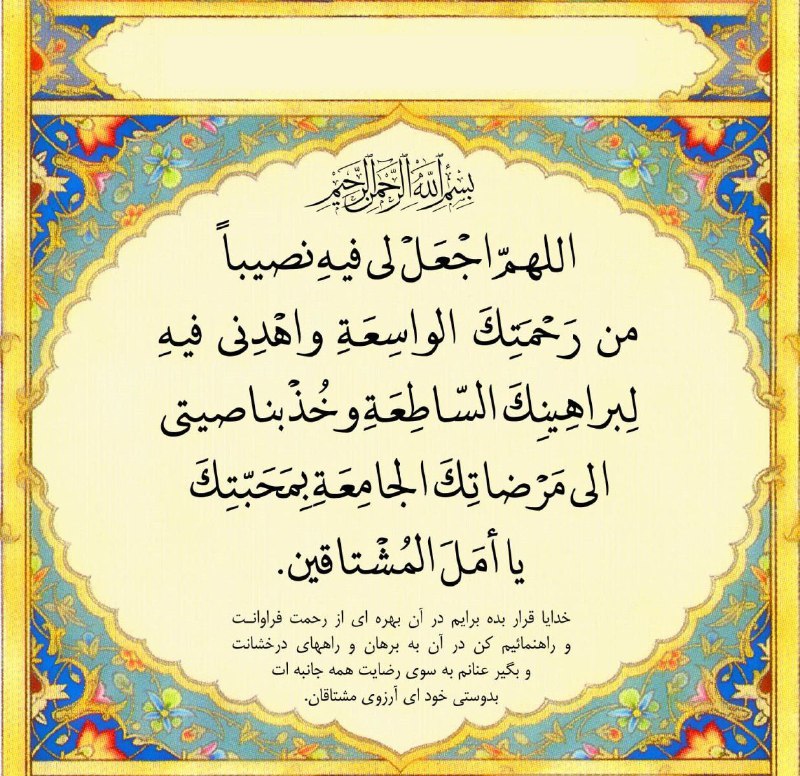 بِسْمِ اللَّهِ الرَّحْمَنِ الرَّحِيمِ
اللهمّ اجْعَلْ لی فیهِ نصیباً
من رَحْمَتِكَ الواسِعَةِ واهْدِنی فیهِ
لِبراهِینِكَ السّاطِعَةِ وخُذْ بناصیتی
الی مَرْضاتِكَ الجامِعَةِ بِمَحَبّتِكَ
یا أمَلَ المُشْتاقین.
خدایا قرار بده برایم در آن بهره ای از رحمت فراوانت
و راهنمائیم کن در آن به برهان و راههای درخشانت
و بگیر عنانم به سوی رضایت همه جانبه ات
بدوستی خود ای آرزوی مشتاقان.